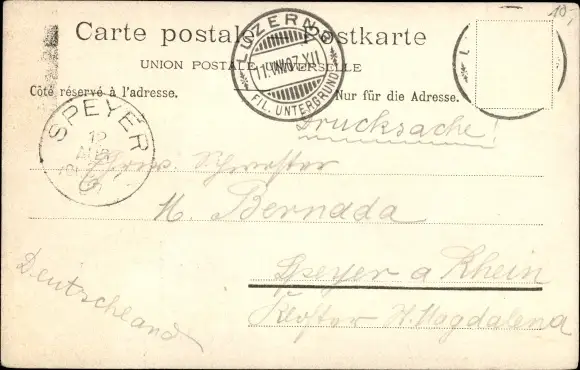 10,-
Carte postale. Postkarte
UNION POSTALE UNIVERSELLE
Côté réservé à l'adresse. Nur für die Adresse.
LUZERN
11.VIII.07.XII
FIL. UNTERGRUND
L
SPEYER
12
AUG
Drucksache!
Schwester
M. Bernada
Speyer a Rhein
Kloster St. Magdalena
Deutschland